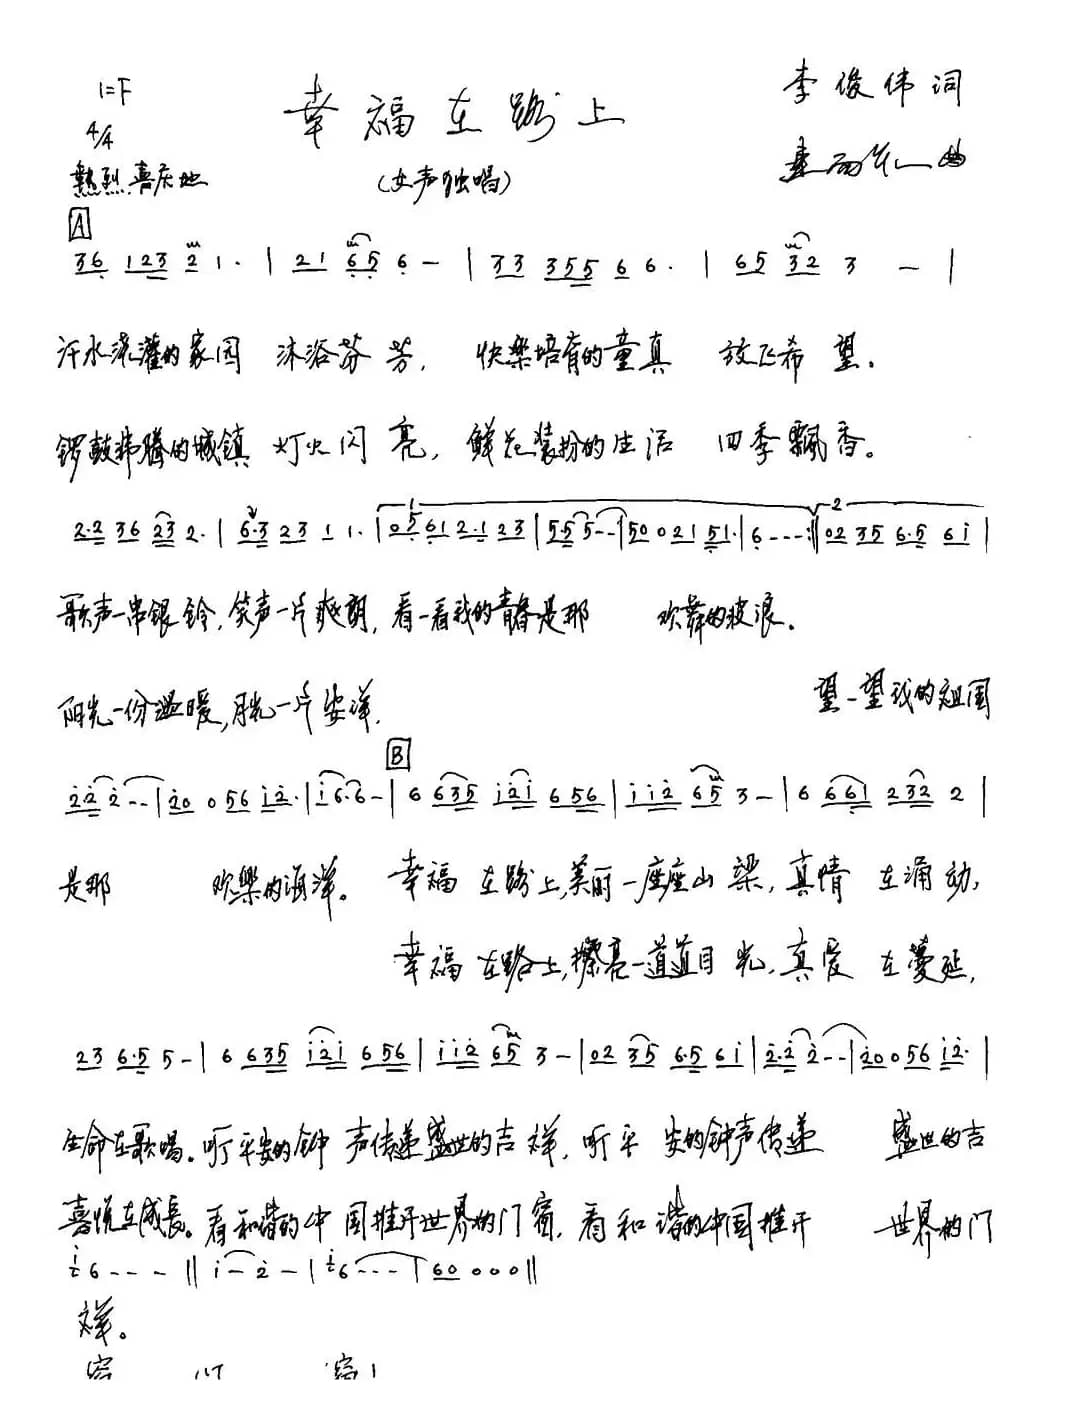 1=F
幸福在路上
李俊伟词
4/4
曲
热烈.喜庆地
(女声独唱)
A
36 123 2 1· | 21 65 6 – | 33 355 6 6· | 65 32 3 – |
汗水浇灌的家园 沐浴芬芳, 快樂培育的童真 放飞希望。
锣鼓沸腾的城镇 灯火闪亮, 鲜花装扮的生活 四季飘香。
1 2
2·2 36 23 2· | 6·3 23 1 1· | 05 61 2·1 23 | 5·5 5-- | 50 0 21 51· | 6--- :|| 02 35 6·5 6i |
歌声一串银铃,笑声一片爽朗,看一看我的青春是那 欢舞的波浪。
阳光一份温暖,月光一片安详. 望一望我的祖国
B
2·2 2-- | 20 0 56 i2· | i6·6- | 6 635 i2i 656 | i i2 65 3- | 6 661 232 2 |
是那 欢樂的海洋。 幸福在路上,美丽一座座山梁,真情在涌动,
幸福在路上,擦亮一道道目光,真爱在蔓延,
23 6·5 5- | 6 635 i2i 656 | i i2 65 3- | 02 35 6·5 6i | 2·2 2-- | 20 0 56 i2· |
生命在歌唱。听平安的钟声传递盛世的吉祥,听平安的钟声传递 盛世的吉
喜悦在成長。看和谐的中国推开世界的门窗,看和谐的中国推开 世界的门
i 6--- || i- 2- | i 6--- | 60 0 0 0 ||
祥。